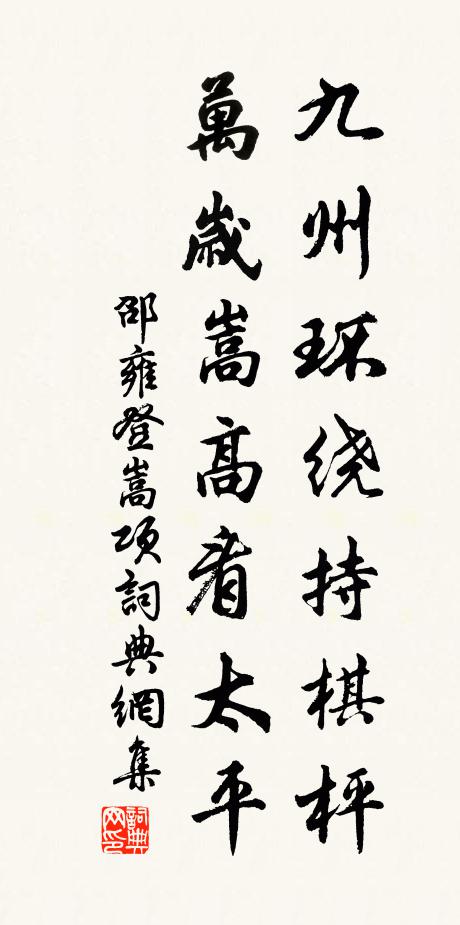 九州环绕持棋枰
萬歲嵩高看太平
邵雍登嵩项詞典網集
詞典网印